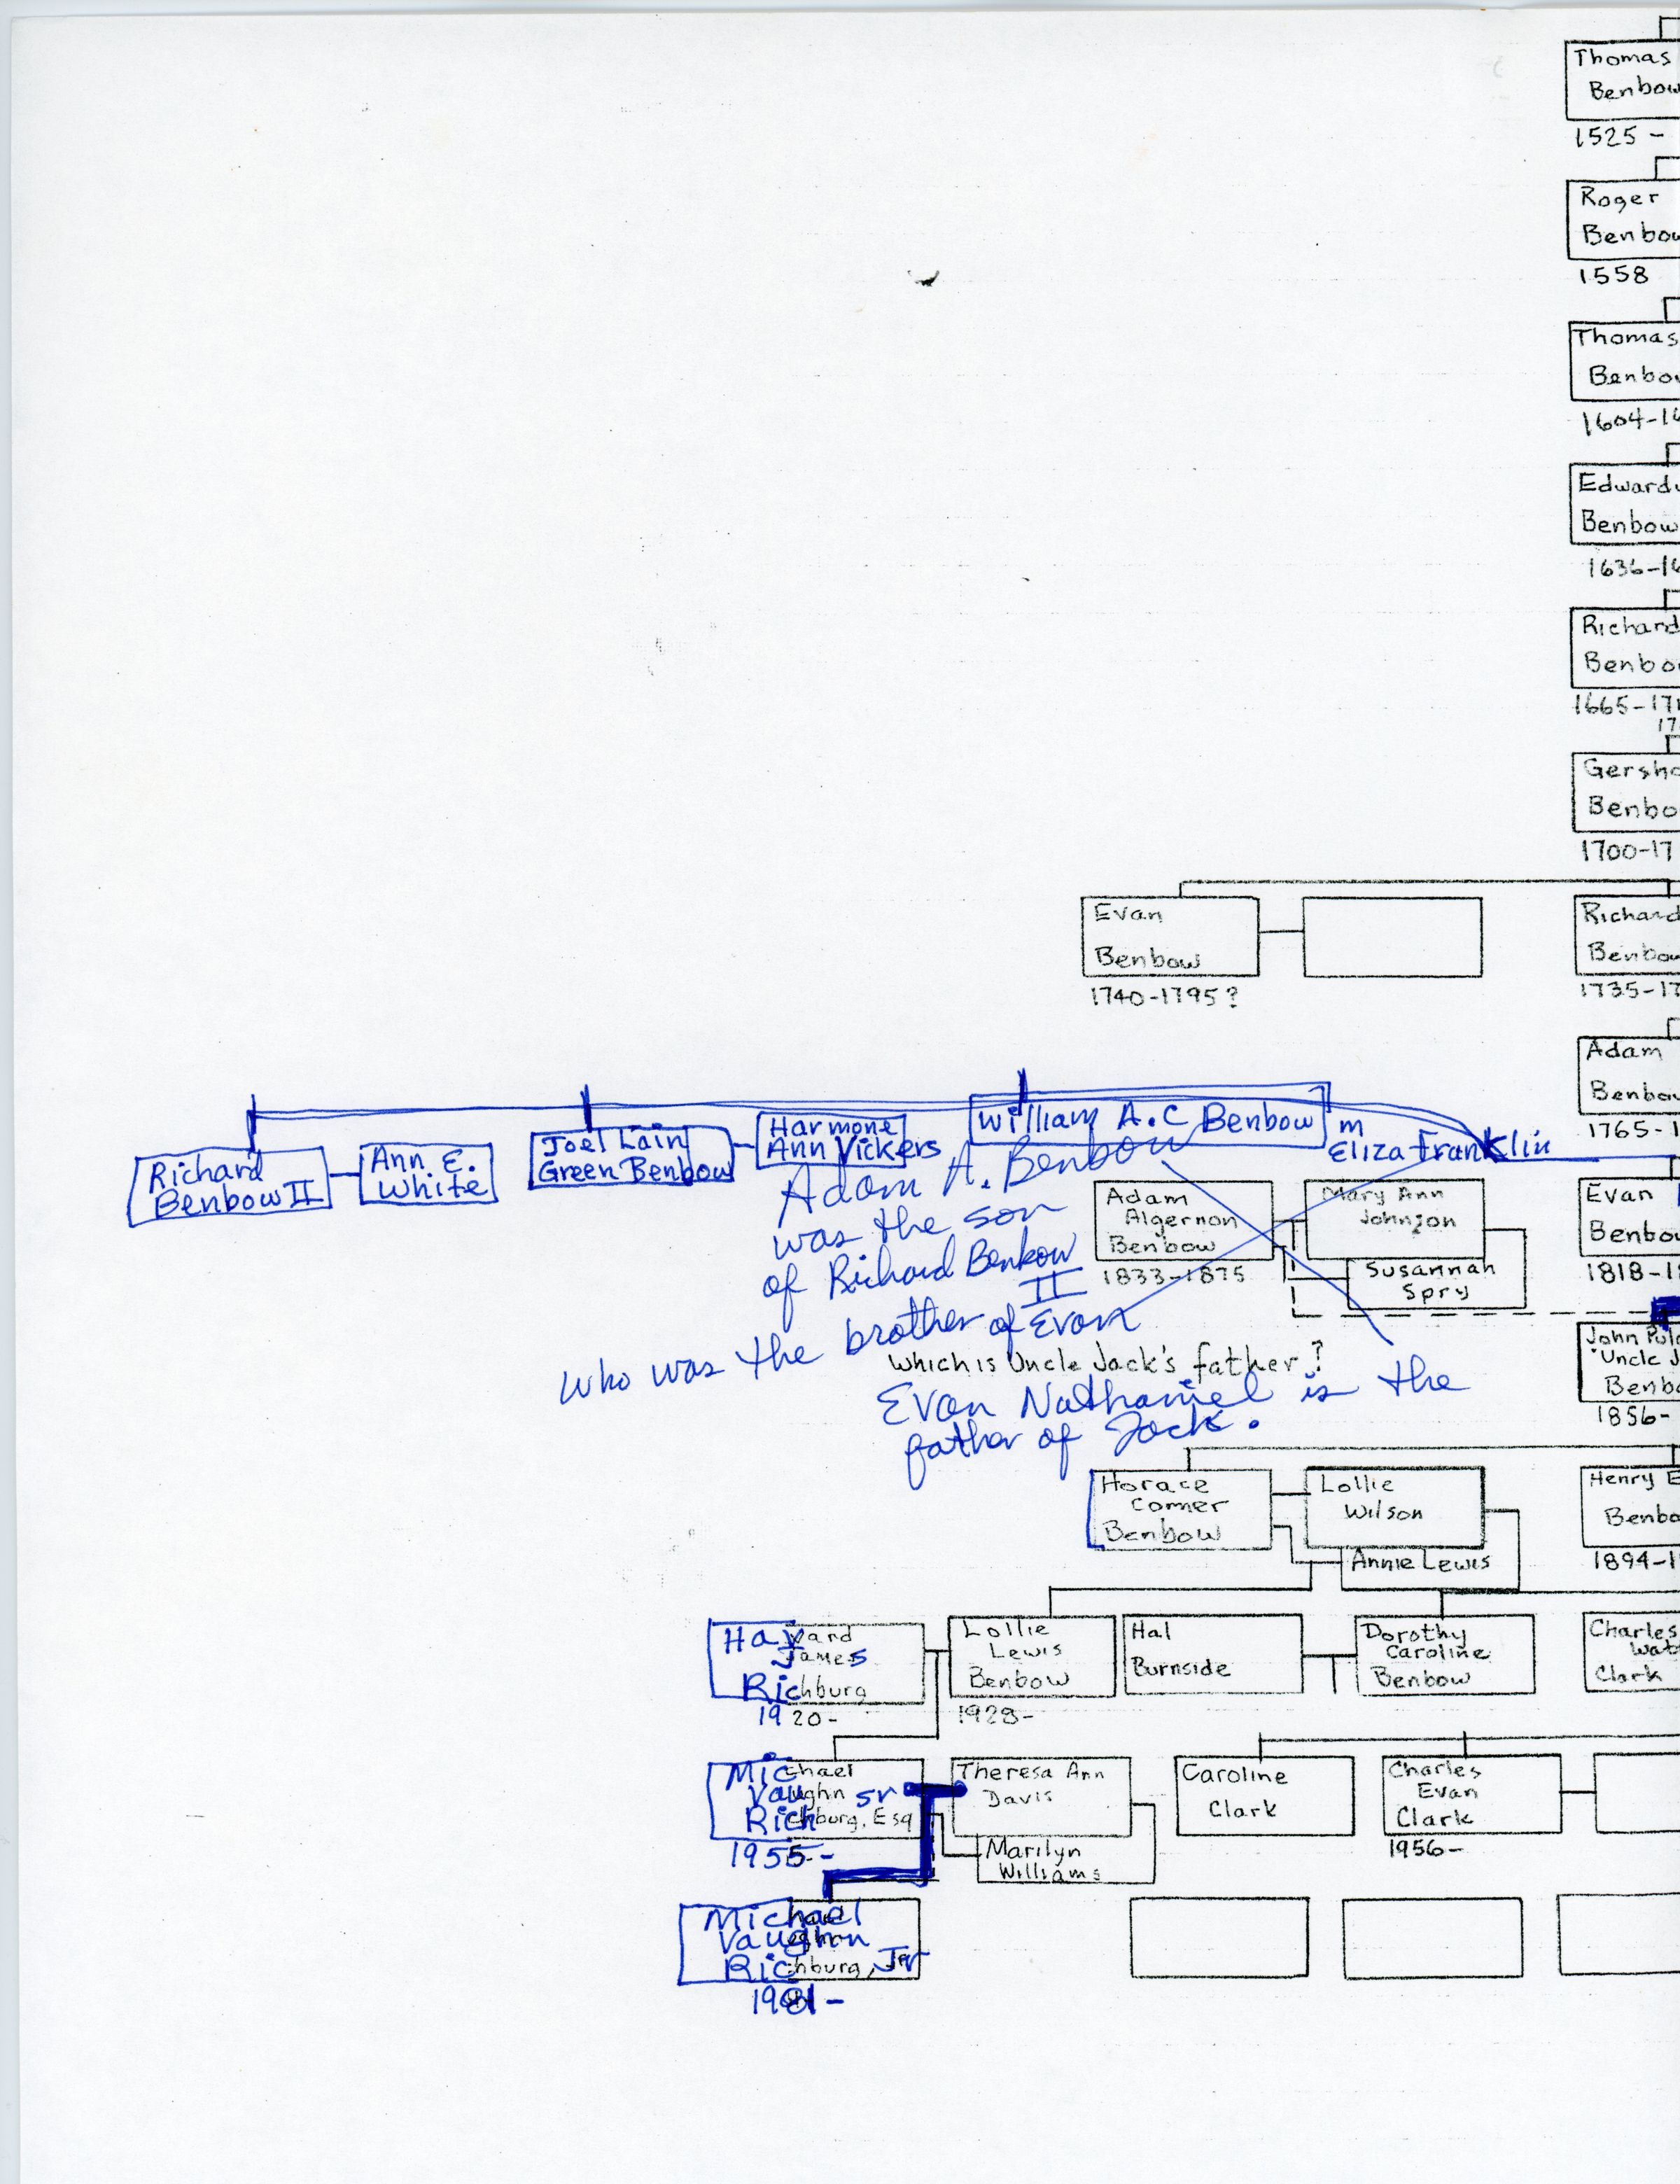 Thomas
Benbow
1525 -
Roger
Benbow
1558
Thomas
Benbo
1604-16
Edward
Benbow
1636-16
Richard
Benbo
1665-171
17
Gersho
Benbo
1700-17
Evan
Benbow
1740-1795?
Richard
Benbow
1735-17
Adam
Benbow
1765-1
Richard
Benbow II
Ann E.
White
Joel Lain
Green Benbow
Harmone
Ann Vickers
William A.C Benbow
m
Eliza Franklin
Adam A. Benbow
was the son
of Richard Benbow
II
who was the brother of Evan
Adam
Algernon
Benbow
1833-1875
Mary Ann
Johnson
Susannah
Spry
Evan
Benbow
1818-18
John Pul
"Uncle J
Benbo
1856-
Which is Uncle Jack's father?
Evan Nathaniel is the
father of Jack.
Horace
Comer
Benbow
Lollie
Wilson
Annie Lewis
Henry E
Benbo
1894-1
Hayward
James
Richburg
1920-
Lollie
Lewis
Benbow
1928-
Hal
Burnside
Dorothy
Caroline
Benbow
Charles
Wat
Clark
Michael
Vaughn Sr
Richburg, Esq
1955-
Theresa Ann
Davis
Marilyn
Williams
Caroline
Clark
Charles
Evan
Clark
1956-
Michael
Vaughn
Richburg, Jr
1981-